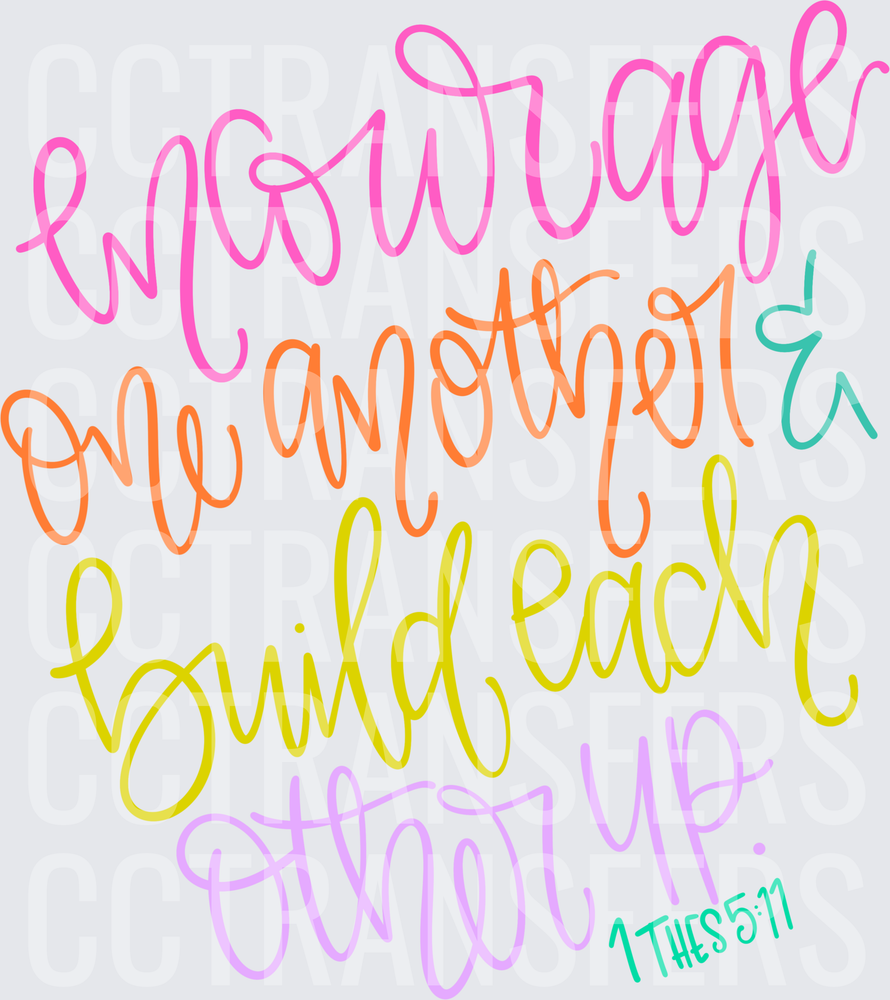 encourage
one another &
build each
other up.
1 THES 5:11
CCTRANSFERS
CCTRANSFERS
CCTRANSFERS
CCTRANSFERS
CCTRANSFERS
CCTRANSFERS